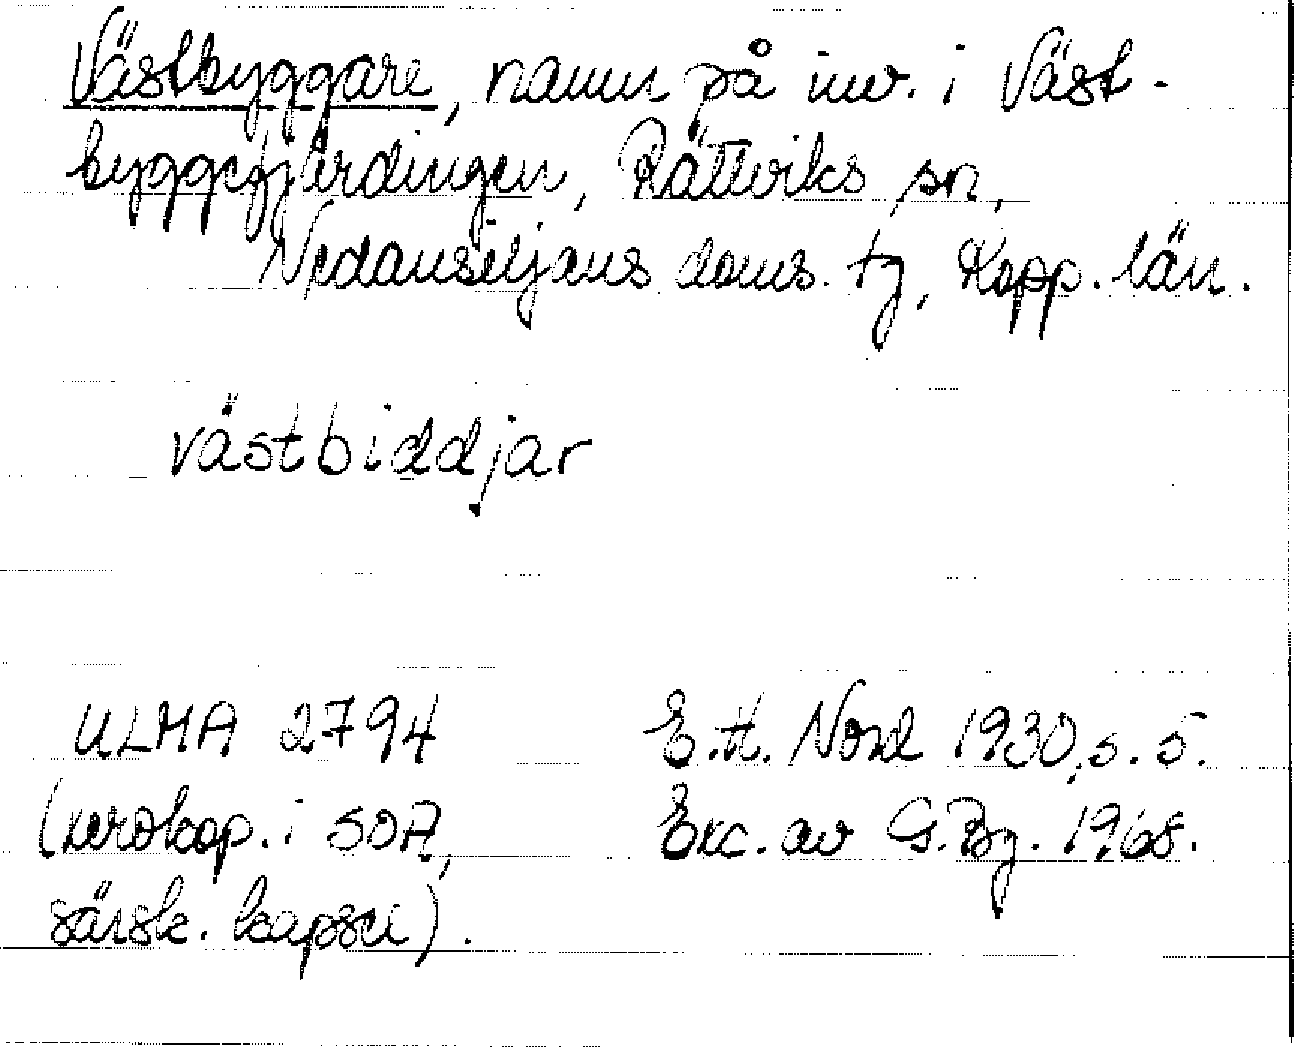 Västbyggare, namn på inv. i Väst-
byggefjärdingen, Rättviks sn,
Nedansiljans doms. tg, Kopp. län.
västbiddjar
ULMA 2794
(xerokop. i SOA,
särsk. kapsel).
E.H. Nord 1930, s. 5.
Exc. av G.Bg. 1968.